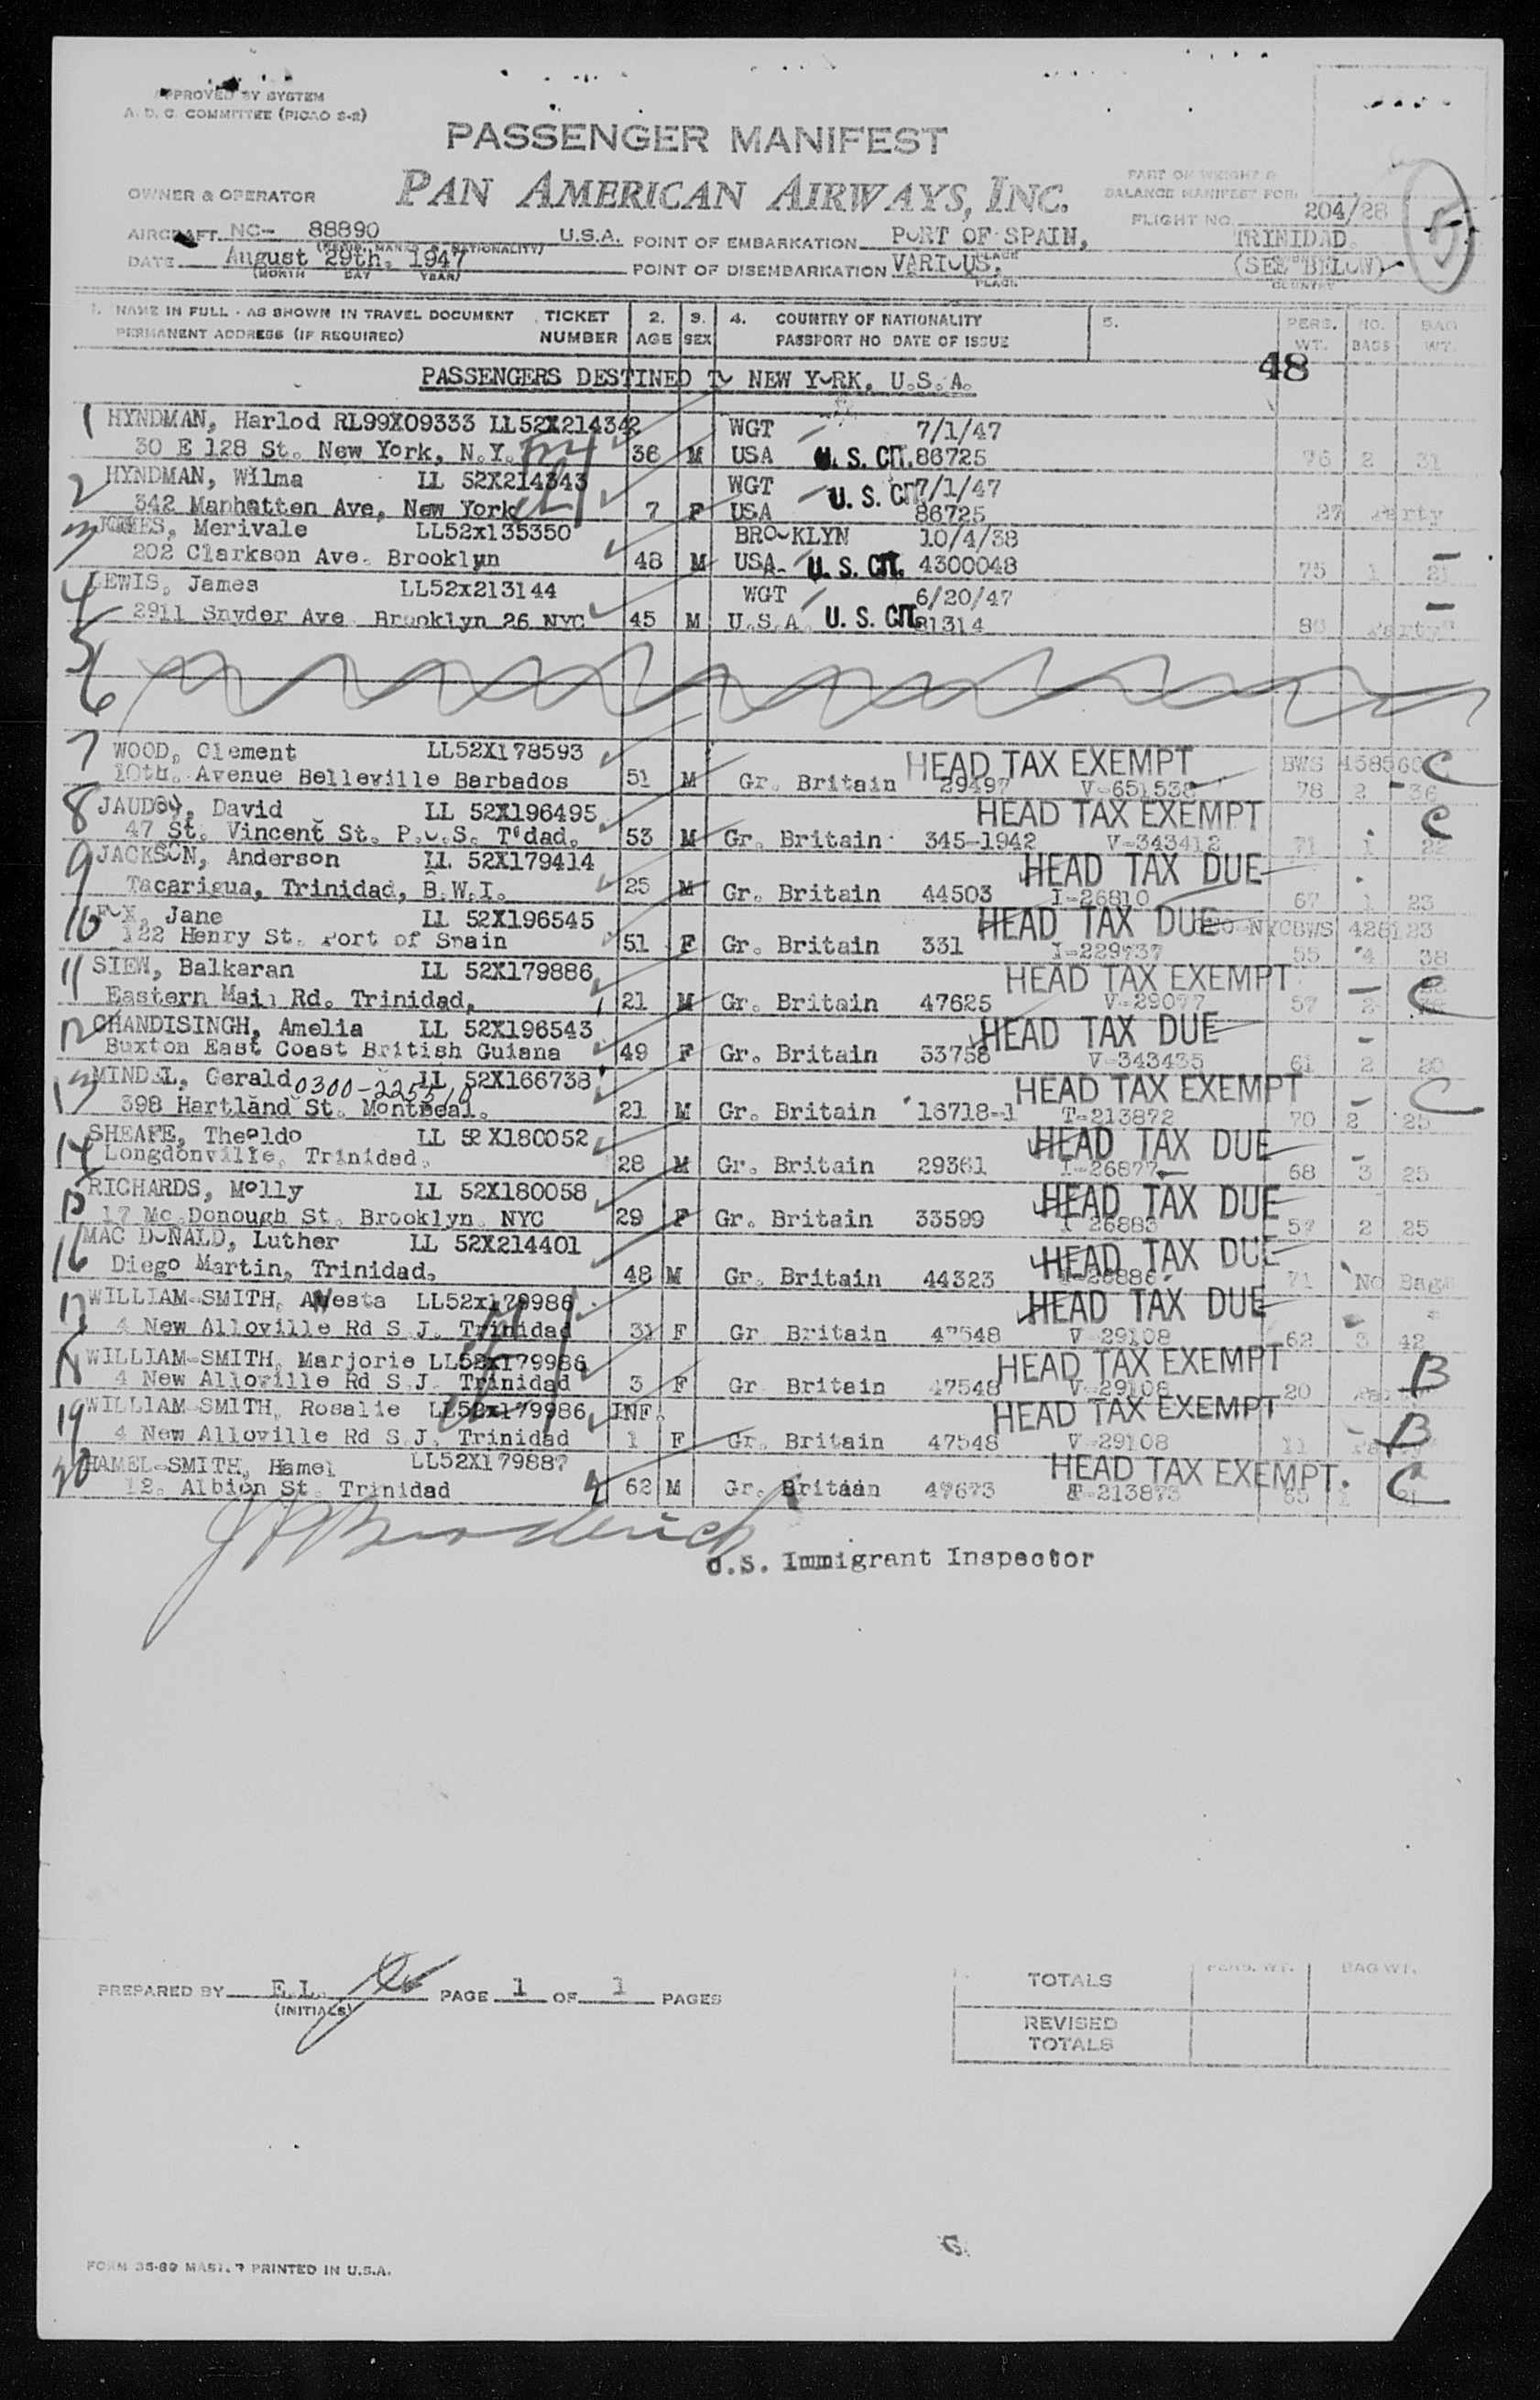 APPROVED BY SYSTEM
A. D. C. COMMITTEE (PICAO S-2)
PASSENGER MANIFEST
PAN AMERICAN AIRWAYS, INC.
OWNER & OPERATOR
PART OF WEIGHT &
BALANCE MANIFEST FOR
FLIGHT NO. 204/28
AIRCRAFT NC- 88890 U.S.A. POINT OF EMBARKATION PORT OF SPAIN, TRINIDAD.
DATE August 29th. 1947 POINT OF DISEMBARKATION VARIOUS, (SEE BELOW)
(MONTH DAY YEAR) PLACE COUNTRY
1. NAME IN FULL - AS SHOWN IN TRAVEL DOCUMENT TICKET 2. 3. 4. COUNTRY OF NATIONALITY 5. PERS. NO. BAG
PERMANENT ADDRESS (IF REQUIRED) NUMBER AGE SEX PASSPORT NO DATE OF ISSUE WT. BAGS WT.
48
PASSENGERS DESTINED TO NEW YORK, U.S.A.
1 HYNDMAN, Harlod RL99X09333 LL52X214342 WGT 7/1/47
30 E 128 St. New York, N.Y. 36 M USA U. S. CIT. 86725 76 2 31
2 HYNDMAN, Wilma LL 52X214343 WGT U. S. CIT 7/1/47
342 Manhatten Ave, New York 7 F USA 86725 27 Party
3 JONES, Merivale LL52x135350 BROOKLYN 10/4/38
202 Clarkson Ave. Brooklyn 48 M USA- U. S. CIT. 4300048 75 1 21
4 LEWIS, James LL52x213144 WGT 6/20/47
2911 Snyder Ave Brooklyn 26 NYC 45 M U.S.A. U. S. CIT. 81314 Party
5
6
7 WOOD, Clement LL52X178593 HEAD TAX EXEMPT BWS C
10th. Avenue Belleville Barbados 51 M Gr. Britain 29497 V-651538 78 2 36
8 JAUDOY, David LL 52X196495 HEAD TAX EXEMPT C
47 St. Vincent St. P.O.S. T'dad. 53 M Gr. Britain 345-1942 V-343412 71 1 22
9 JACKSON, Anderson LL 52X179414 HEAD TAX DUE
Tacarigua, Trinidad, B.W.I. 25 M Gr. Britain 44503 I-26810 67 1 23
10 FOX, Jane LL 52X196545 HEAD TAX DUE NYCBWS 428123
122 Henry St. Port of Spain 51 F Gr. Britain 331 I-229737 55 4 38
11 SIEW, Balkaran LL 52X179886 HEAD TAX EXEMPT C
Eastern Main Rd. Trinidad, 21 M Gr. Britain 47625 V-29077 57 2
12 CHANDISINGH, Amelia LL 52X196543 HEAD TAX DUE
Buxton East Coast British Guiana 49 F Gr. Britain 33758 V-343435 61 2 20
13 MINDEL, Gerald 0300-225310 LL 52X166738 HEAD TAX EXEMPT C
398 Hartland St. Montreal. 21 M Gr. Britain 16718-1 T-213872 70 2 25
14 SHEAFE, Theoldo LL 52X180052 HEAD TAX DUE
Longdonville, Trinidad. 28 M Gr. Britain 29361 I-26877 68 3 25
15 RICHARDS, Molly LL 52X180058 HEAD TAX DUE
17 Mc.Donough St. Brooklyn. NYC 29 F Gr. Britain 33599 I 26883 57 2 25
16 MAC DONALD, Luther LL 52X214401 HEAD TAX DUE
Diego Martin, Trinidad. 48 M Gr. Britain 44323 I-26886 71 No Bags
17 WILLIAM-SMITH, Anesta LL52x179986 HEAD TAX DUE
4 New Alloville Rd S J. Trinidad 31 F Gr Britain 47548 V-29108 62 3 42
18 WILLIAM-SMITH, Marjorie LL52x179986 HEAD TAX EXEMPT B
4 New Alloville Rd S J. Trinidad 3 F Gr Britain 47548 V-29108 20
19 WILLIAM SMITH, Rosalie LL52x179986 INF. HEAD TAX EXEMPT B
4 New Alloville Rd S.J. Trinidad 1 F Gr. Britain 47548 V-29108 11
20 HAMEL-SMITH, Hamel LL52X179887 HEAD TAX EXEMPT. C
12. Albion St. Trinidad 62 M Gr. Britain 47673 T-213873 1 21
J P Broderick
U.S. Immigrant Inspector
PREPARED BY E.L. PAGE 1 OF 1 PAGES
(INITIALS)
PERS. WT. BAG WT.
TOTALS
REVISED
TOTALS
FORM 35-69 PRINTED IN U.S.A.